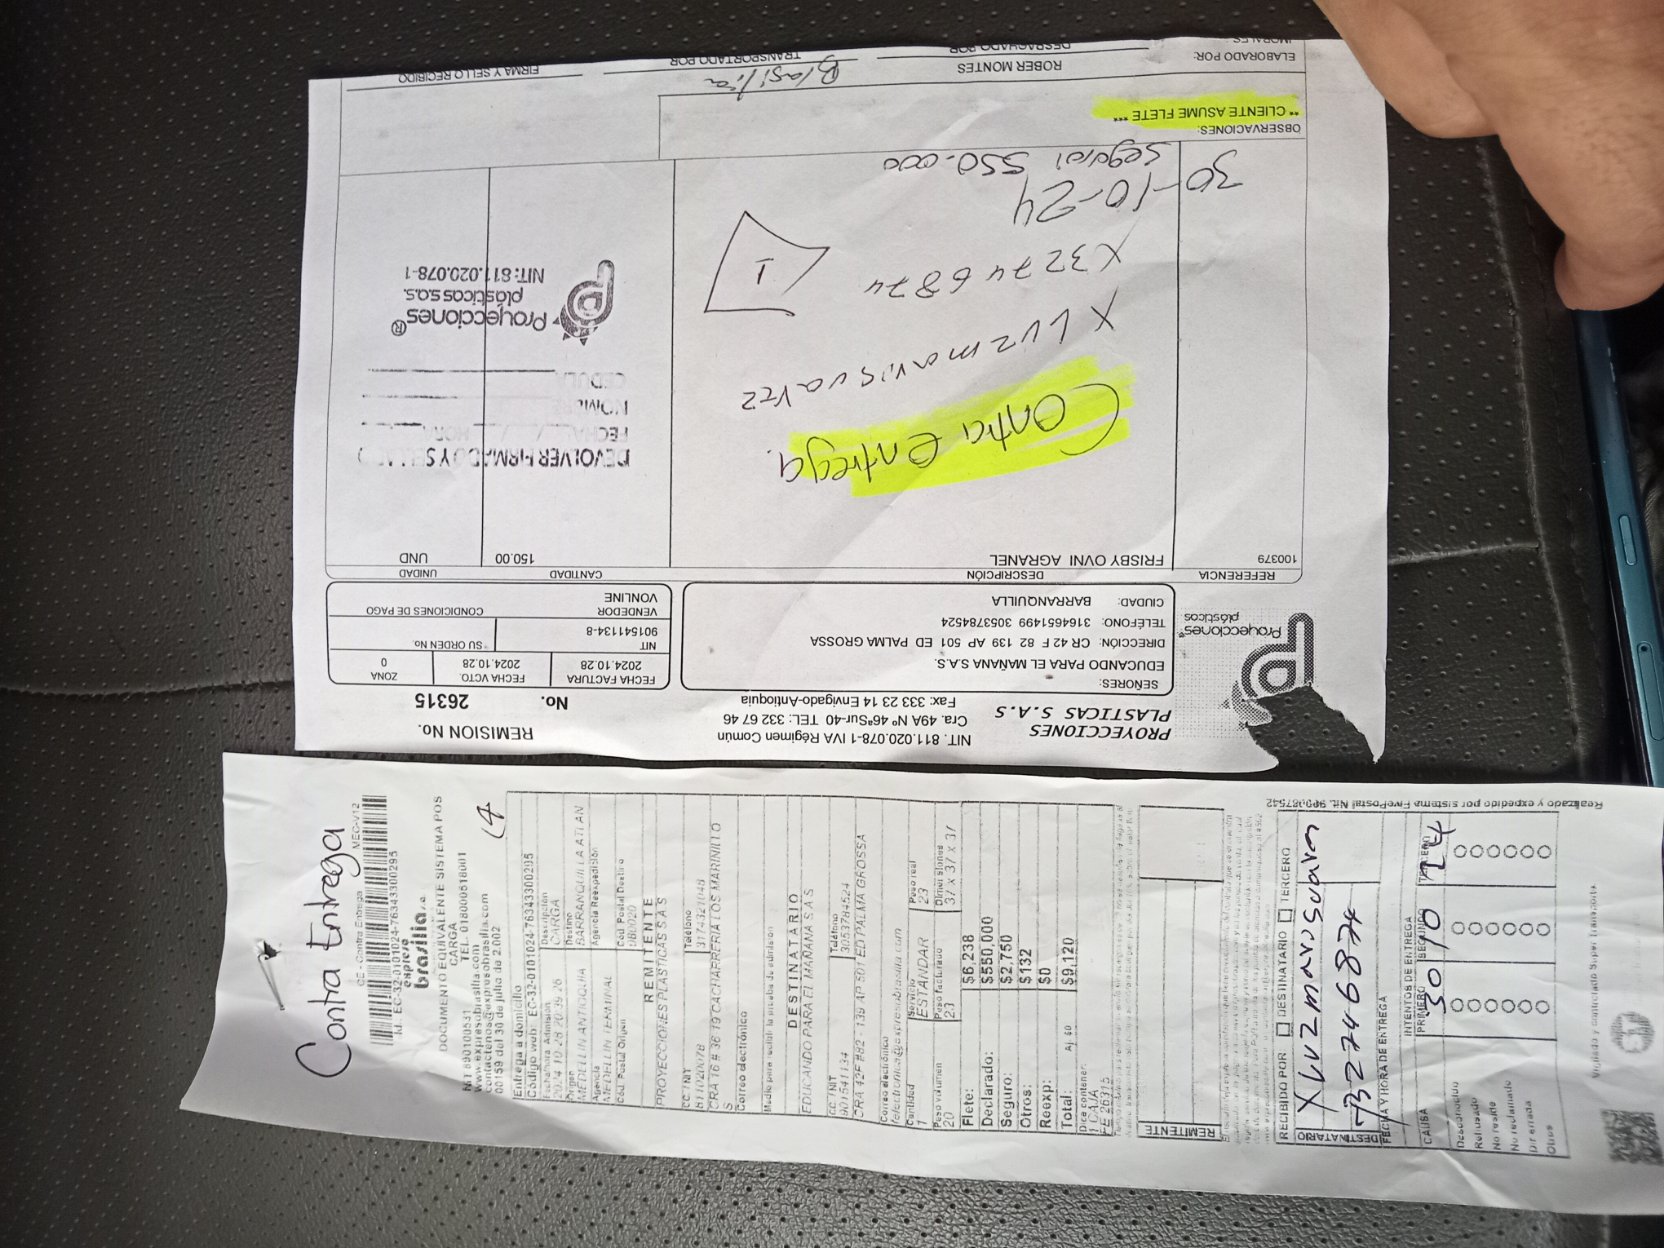 Proyecciones
plásticos
PROYECCIONES
PLASTICAS S.A.S
NIT. 811.020.078-1 IVA Régimen Común
Cra. 49A Nº 46ªSur-40 TEL: 332 67 46
Fax: 333 23 14 Envigado-Antioquia
REMISION No.
No. 26315
SEÑORES:
EDUCANDO PARA EL MAÑANA S.A.S.
DIRECCIÓN: CR 42 F 82 139 AP 501 ED PALMA GROSSA
TELÉFONO: 3164651499 3053784524
CIUDAD: BARRANQUILLA
FECHA FACTURA FECHA VCTO. ZONA
2024.10.28 2024.10.28 0
NIT SU ORDEN No.
901541134-8
VENDEDOR CONDICIONES DE PAGO
VONLINE
REFERENCIA DESCRIPCIÓN CANTIDAD UNIDAD
100379 FRISBY OVNI AGRANEL 150.00 UND
Contra Entrega.
X Luz marisuarez
X32746874
1
30-10-24
550.000
DEVOLVER FIRMADO Y
FECHA HORA
CEDULA
Proyecciones®
plásticos s.a.s.
NIT: 811.020.078-1
OBSERVACIONES:
** CLIENTE ASUME FLETE **
ELABORADO POR:
ROBER MONTES
DESPACHADO POR
Brasilia
TRANSPORTADO POR
FIRMA Y SELLO RECIBIDO
Contra Entrega
CE - Contra Entrega MEC-V12
expreso
brasilia s.a.
DOCUMENTO EQUIVALENTE SISTEMA POS
CARGA
NIT 890100531 - TEL. 018000518001
www.expresobrasilia.com
contactenos@expresobrasilia.com
00159 del 30 de julio de 2.002
Entrega a domicilio
Descripción
CARGA
Fecha/hora Admisión
Origen
MEDELLIN ANTIOQUIA
Destino
BARRANQUILLA ATLAN
Agencia
MEDELLIN TERMINAL
Agencia Reexpedición
Cód. Postal Origen
Cód Postal Destino
080020
REMITENTE
PROYECCIONES PLASTICAS S A S
CC / NIT
811020078
Teléfono
3174321048
CRA 16 # 36 19 CACHARRERIA LOS MARINILLO
S
Correo electrónico
DESTINATARIO
EDUCANDO PARA EL MAÑANA S A S
CC / NIT
901541134
Teléfono
3053784524
CRA 42F #82 - 139 AP 501 ED PALMA GROSSA
Correo electrónico
Cantidad
1
Servicio
ESTANDAR
Peso real
23
Peso volumen
20
Peso facturado
23
Dimensiones
37 x 37 x 37
Flete: $6,238
Declarado: $550,000
Seguro: $2,750
Otros: $132
Reexp: $0
Total: $9,120
Dice contener:
1 CAJA
FE 26315
REMITENTE
RECIBIDO POR DESTINATARIO TERCERO
DESTINATARIO
X Luz marysuarez
32746874
FECHA Y HORA DE ENTREGA
INTENTOS DE ENTREGA
CAUSA PRIMERO SEGUNDO TERCERO
30 10 24
Desconocido
Rehusado
No reside
No reclamado
Dir errada
Otros
Realizado y expedido por sistema FivePostal Nit.
Vigilado y controlado Supertransporte